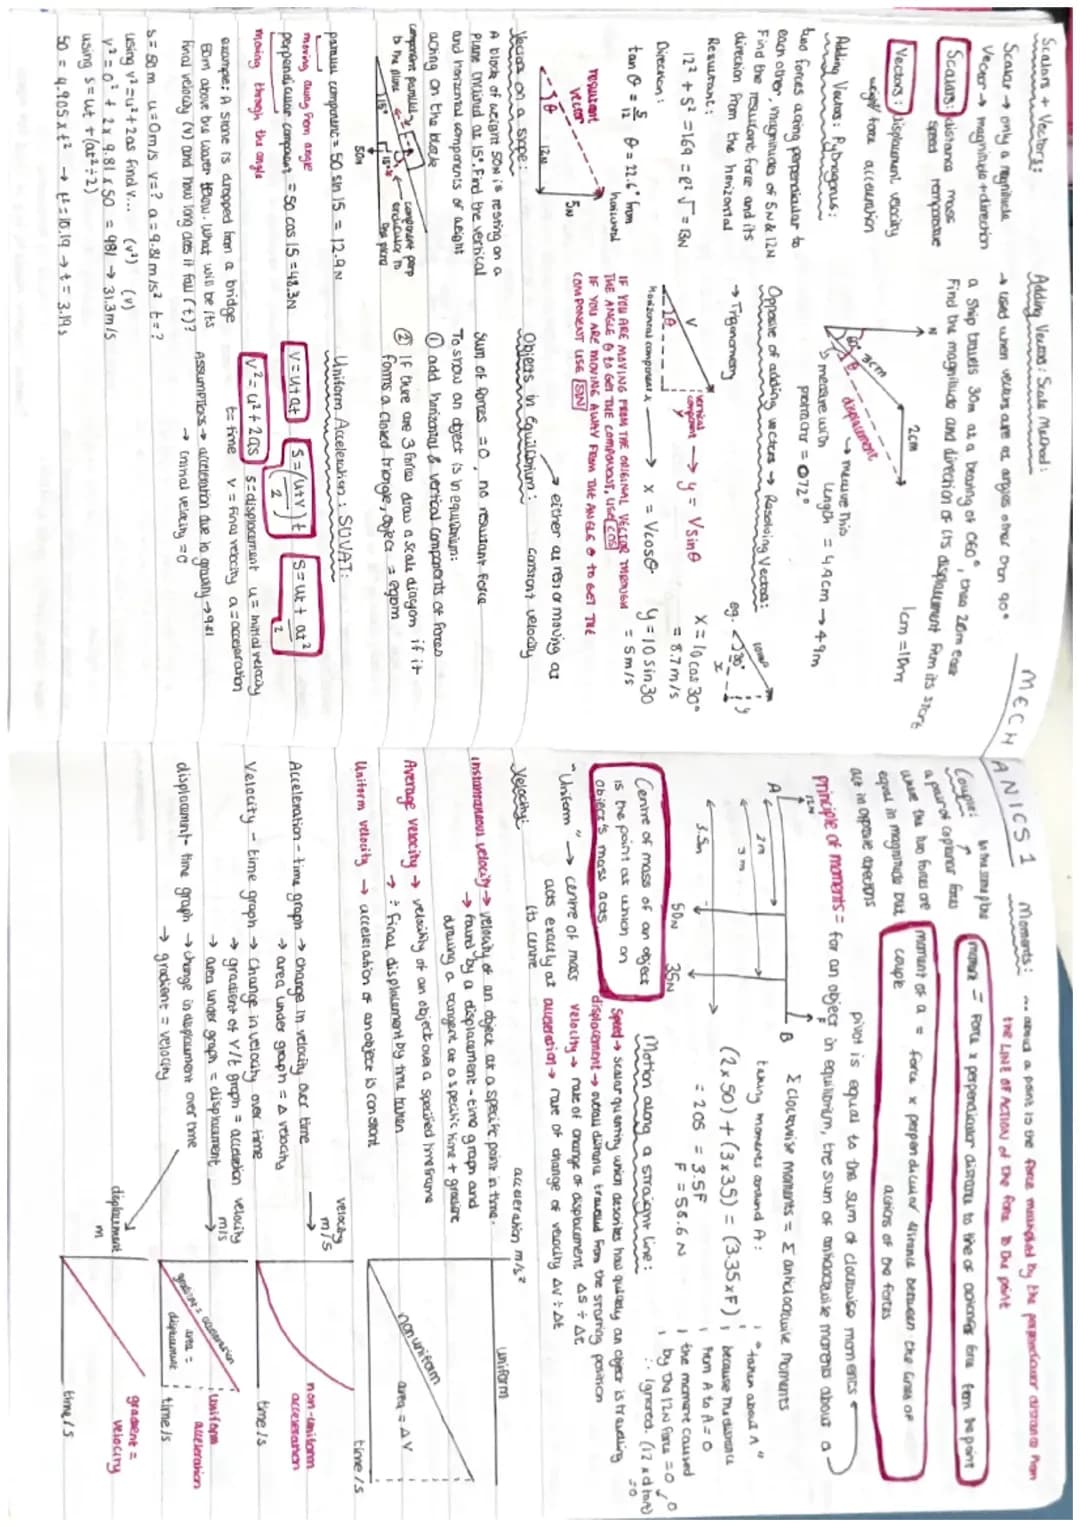 MECHANICS 1
Scalars + Vectors:
Scalar → only a magnitude
Vector → magnitude + direction
Scalars: distance mass
speed temperature
Vectors: displacement velocity
weight force acceleration
Adding Vectors: Pythagorus:
two forces acting perpendicular to
each other, magnitudes of 5N & 12N
Find the resultant force and its
direction from the horizontal
Resultant:
12² + 5² = 169 = R² √ = 13N
Direction:
tan θ = 5/12 θ = 22.6° from
horizontal
resultant
vector
θ
12N
5N
Vectors on a slope:
A block of weight 50N is resting on a
plane inclined at 15°. Find the vertical
and horizontal components of weight
acting on the block
component parallel
to the plane
component perp
endicular to
the plane
15°
15°
50N
parallel component = 50 sin 15 = 12.9N
moving away from angle
perpendicular component = 50 cos 15 = 48.3N
moving through the angle
example: A stone is dropped from a bridge
50m above the water below. What will be its
final velocity (v) and how long does it fall (t)?
s = 50m u = 0m/s v = ? a = 9.81 m/s² t = ?
using v² = u² + 2as find v... (v²) (v)
v² = 0² + 2 x 9.81 x 50 = 981 → 31.3m/s
using s = ut + (at² ÷ 2)
50 = 4.905 x t² → t² = 10.19 → t = 3.19s
Adding Vectors: Scale Method:
→ used when vectors are at angles other than 90°
a ship travels 30m at a bearing of 060°, then 20m east
Find the magnitude and direction of its displacement from its start
N
3cm
2cm
1cm = 10m
θ
displacement
→ measure this
length = 4.4cm → 44m
↳ measure with
protractor = 072°
Opposite of adding vectors → Resolving Vectors:
→ Trigonometry
V
θ
vertical
component → y = V sin θ
y
horizontal component x → x = V cos θ
eg.
10m/s
30°
x
y
x = 10 cos 30°
= 8.7 m/s
y = 10 sin 30
= 5m/s
IF YOU ARE MOVING FROM THE ORIGINAL VECTOR THROUGH
THE ANGLE θ to GET THE COMPONENT, USE COS
IF YOU ARE MOVING AWAY FROM THE ANGLE θ to GET THE
COMPONENT USE SIN
Objects in Equilibrium:
→ either at rest or moving at
constant velocity
Sum of forces = 0, no resultant force
To show an object is in equilibrium:
① add horizontal & vertical components of forces
② If there are 3 forces draw a scale diagram if it
forms a closed triangle, object = eqbm
Uniform Acceleration: SUVAT:
v = u + at
s = (u+v/2) t
s = ut + at²/2
v² = u² + 2as
s = displacement u = initial velocity
t = time v = final velocity a = acceleration
Assumptions → acceleration due to gravity → 9.81
→ initial velocity = 0
Moments:
THE LINE OF ACTION of the force to the point
moment = Force x perpendicular distance to line of action of force from the point
Couple:
in the same plane
a pair of coplanar forces
where the two forces are
equal in magnitude but
act in opposite directions
moment of a couple = force x perpendicular distance between the lines of
actions of the forces
principle of moments = for an object in equilibrium, the sum of anticlockwise moments about a
pivot is equal to the sum of clockwise moments
A
B
12N
F
2m
3m
3.5m
50N
35N
Σ clockwise moments = Σ anticlockwise moments
taking moments around A:
(2 x 50) + (3 x 35) = (3.35 x F)
= 205 = 3.5F
F = 58.6 N
* "taken about A"
because the distance
from A to A = 0
the moment caused
by the 12N force = 0
∴ ignored. (12 x 0 = 0)
Centre of mass of an object
is the point at which an
object's mass acts
"Uniform" → centre of mass
acts exactly at
its centre
Motion along a straight line:
Speed → scalar quantity which describes how quickly an object is travelling
displacement → overall distance travelled from the starting position
velocity → rate of change of displacement Δs ÷ Δt
acceleration → rate of change of velocity Δv ÷ Δt
Velocity:
instantaneous velocity → velocity of an object at a specific point in time.
→ found by a displacement-time graph and
drawing a tangent at a specific time + gradient
Average velocity → velocity of an object over a specified timeframe
→ ÷ final displacement by time taken
Uniform velocity → acceleration of an object is constant
acceleration m/s²
uniform
non uniform
area = ΔV
time/s
Acceleration-time graph → change in velocity over time
→ area under graph = Δ velocity
velocity
m/s
non-uniform
acceleration
time/s
Velocity-time graph → Change in velocity over time
→ gradient of v/t graph = acceleration
→ area under graph = displacement
velocity
m/s
gradient = acceleration
area =
displacement
uniform
acceleration
time/s
displacement-time graph → change in displacement over time
→ gradient = velocity
displacement
m
gradient =
velocity
time/s